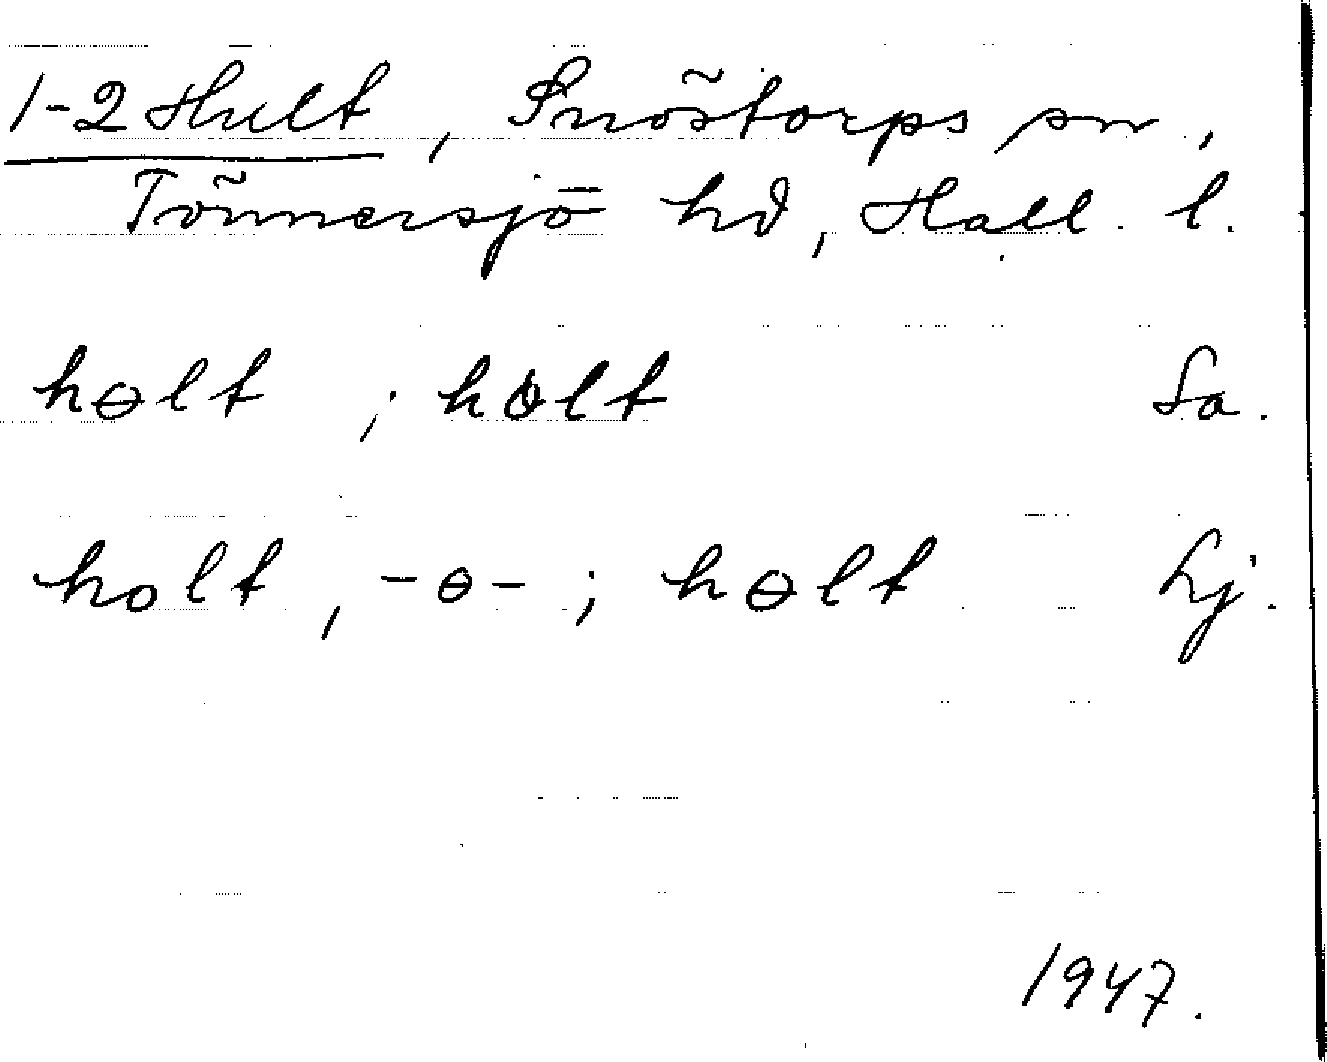 1-2 Hult, Snöstorps sn.,
Tönnersjö hd, Hall. l.
hɵlt ; hɵlt Sa.
holt, -ɵ- ; hɵlt Lj.
1947.